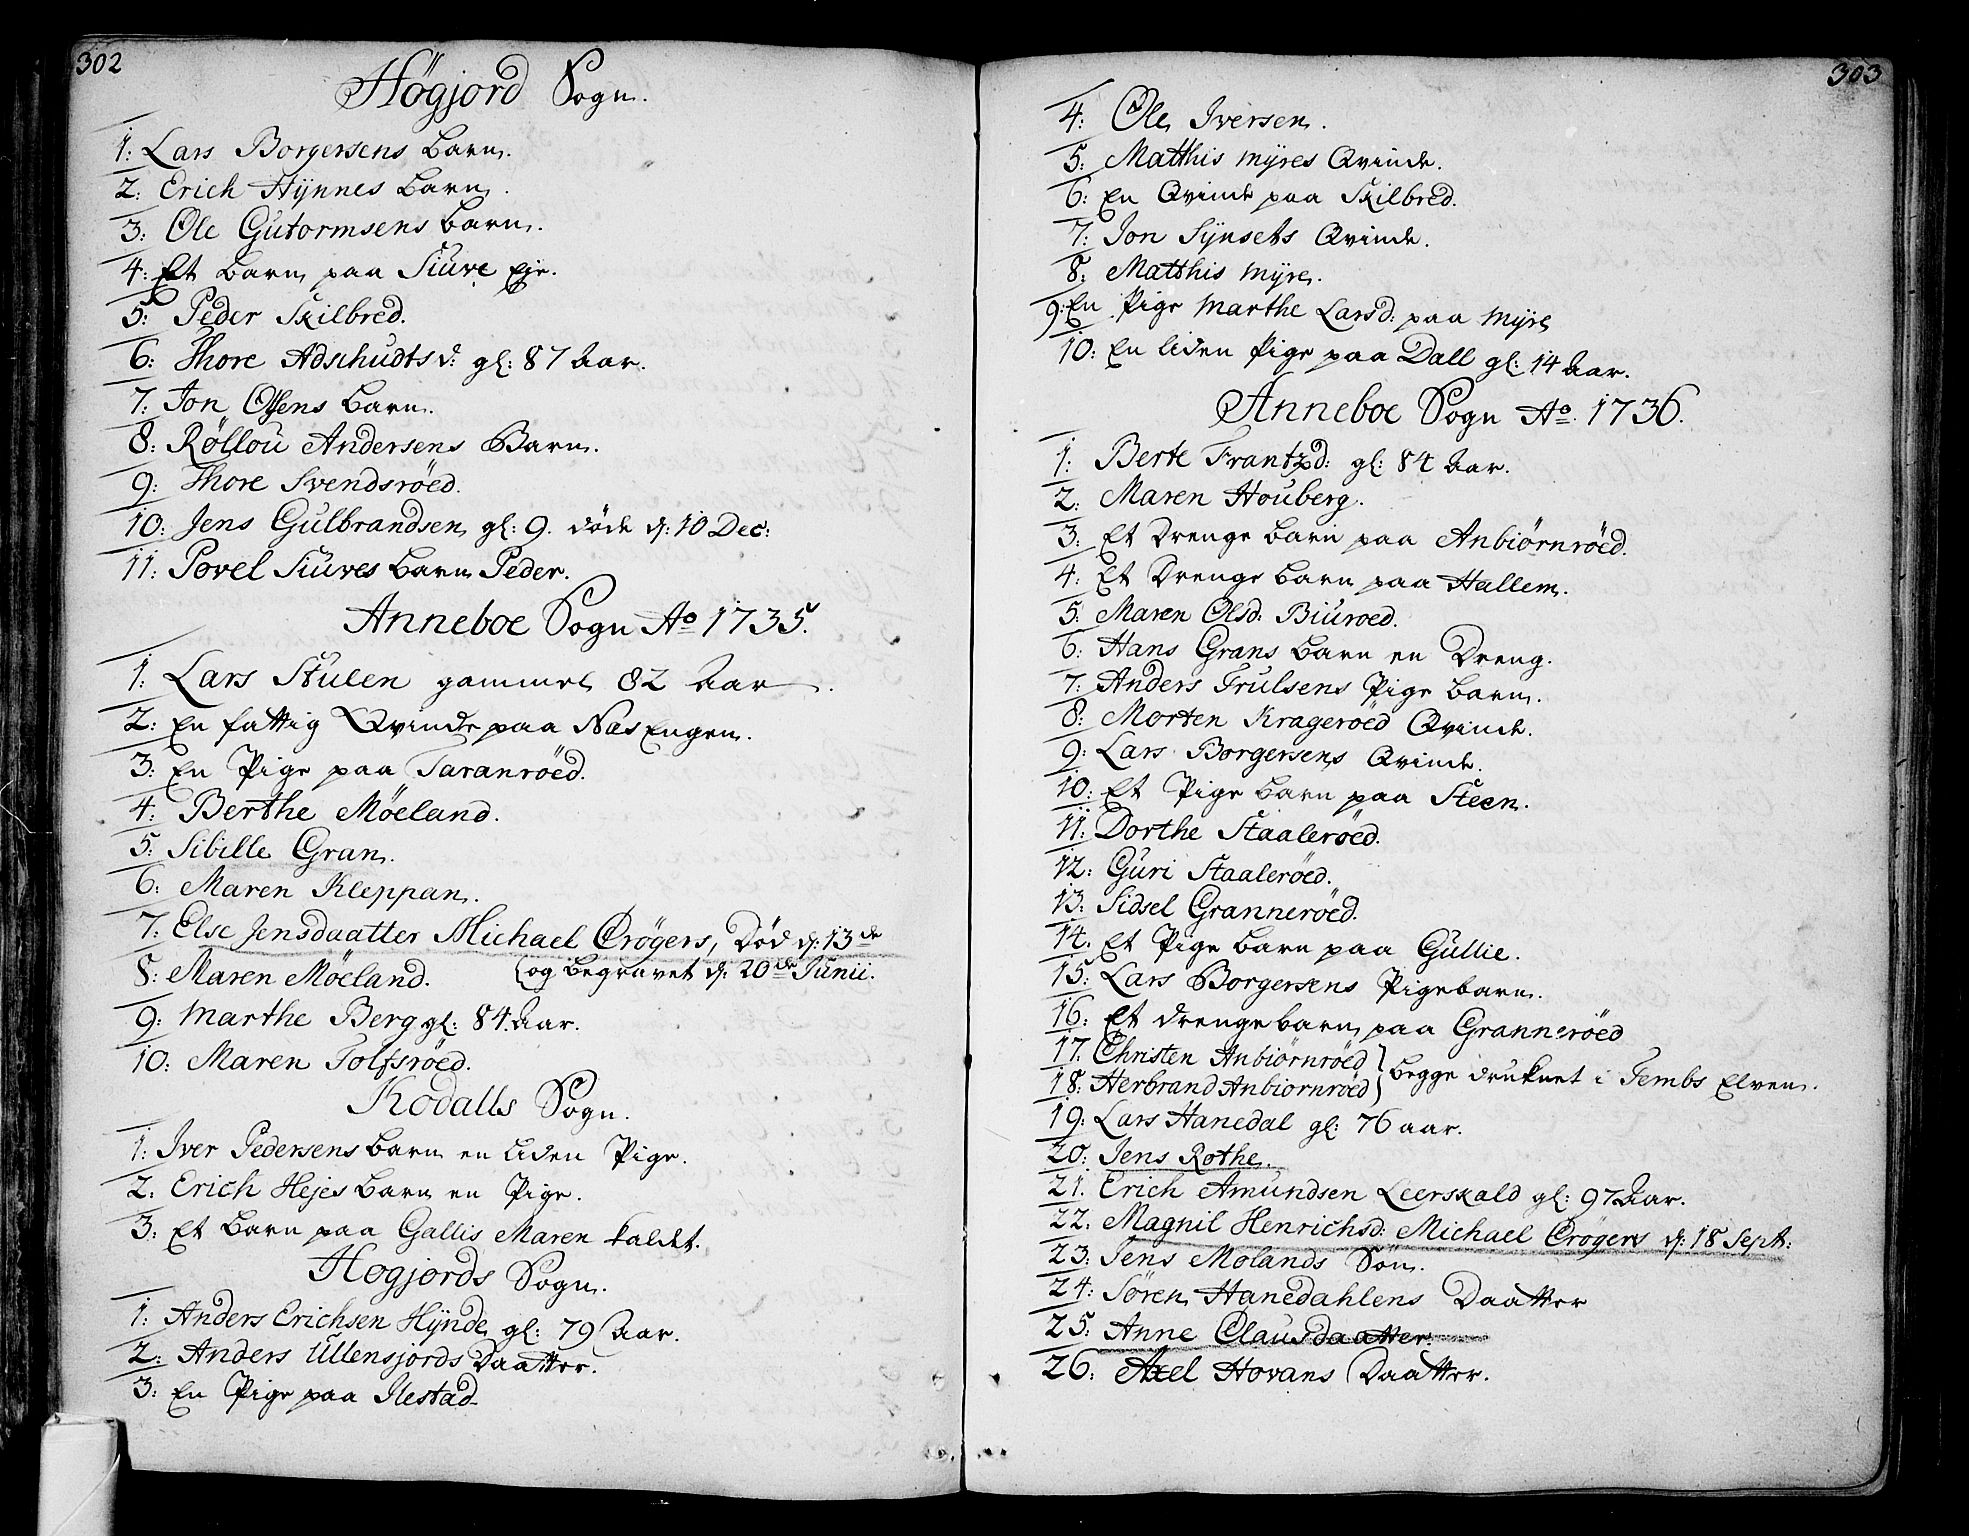 302
Högjord Sogn.
1: Lars Borgersens Barn.
2: Erich Hÿnnes Barn.
3: Ole Gutormsens Barn.
4: Et Barn paa Siuve Eje.
5: Peder Skilbred.
6: Thore Adschudtsd: gl: 87 Aar.
7: Jon Olsens Barn.
8: Röllou Andersens Barn.
9: Thore Svendsröed.
10: Jens Gulbrandsen gl: 9. döde d: 10 Dec:
11: Povel Siuves Barn Peder.
Anneboe Sogn Ao 1735.
1: Lars Stulen gammel 82 Aar.
2: En fattig Qvinde paa Næs Engen.
3: En Pige paa Taranröed.
4: Berthe Möeland.
5: Sibille Gran.
6: Maren Kleppan.
7: Else Jensdaatter Michael Crögers, Död d: 13de
8: Maren Möeland. og begravet d: 20de Junii.
9: Marthe Berg gl: 84. Aar.
10: Maren Tolfsröed.
Kodalls Sogn.
1: Iver Pedersens Barn en liden Pige.
2: Erich Hejes Barn en Pige.
3: Et Barn paa Gallis Maren kaldet.
Hogjords Sogn.
1: Anders Erichsen Hÿnde gl: 79 Aar.
2: Anders Ullensjords Daatter.
3: En Pige paa Ilestad
303
4: Ole Iversen.
5: Matthis Mÿres Qvinde.
6: En Qvinde paa Skilbred.
7: Jon Sÿnsets Qvinde.
8: Matthis Mÿre.
9: En Pige Marthe Larsd: paa Mÿre
10: En liden Pige paa Dall gl: 14 Aar.
Anneboe Sogn Ao 1736.
1: Berte Frantzd: gl: 84 Aar.
2. Maren Houberg.
3: Et Drenge Barn paa Anbiörnröed.
4: Et Drenge Barn paa Hallem.
5: Maren Olsd: Biuroed.
6: Hans Grans Barn en Dreng.
7: Anders Trulsens Pige Barn.
8: Morten Krageröed Qvinde.
9: Lars Borgersens Qvinde.
10: Et Pige Barn paa Steen.
11: Dorthe Staaleröed.
12: Guri Staaleröed.
13: Sidsel Granneröed.
14. Et Pige Barn paa Gullie.
15: Lars Borgersens Pigebarn.
16: Et drengebarn paa Granneröed
17. Christen Anbiörnröed
18: Herbrand Anbiornröed begge druknet i Tembs Elven.
19: Lars Hanedal gl: 76 aar.
20: Jens Rothe.
21. Erich Amundsen Leerskald gl: 97 Aar.
22: Magnil Henrichsd: Michael Crögers d: 18 Sept:
23: Jens Molands Sön.
24: Sören Hanedahlens Daatter
25: Anne Clausdaatter.
26: Axel Hovans Daatter.